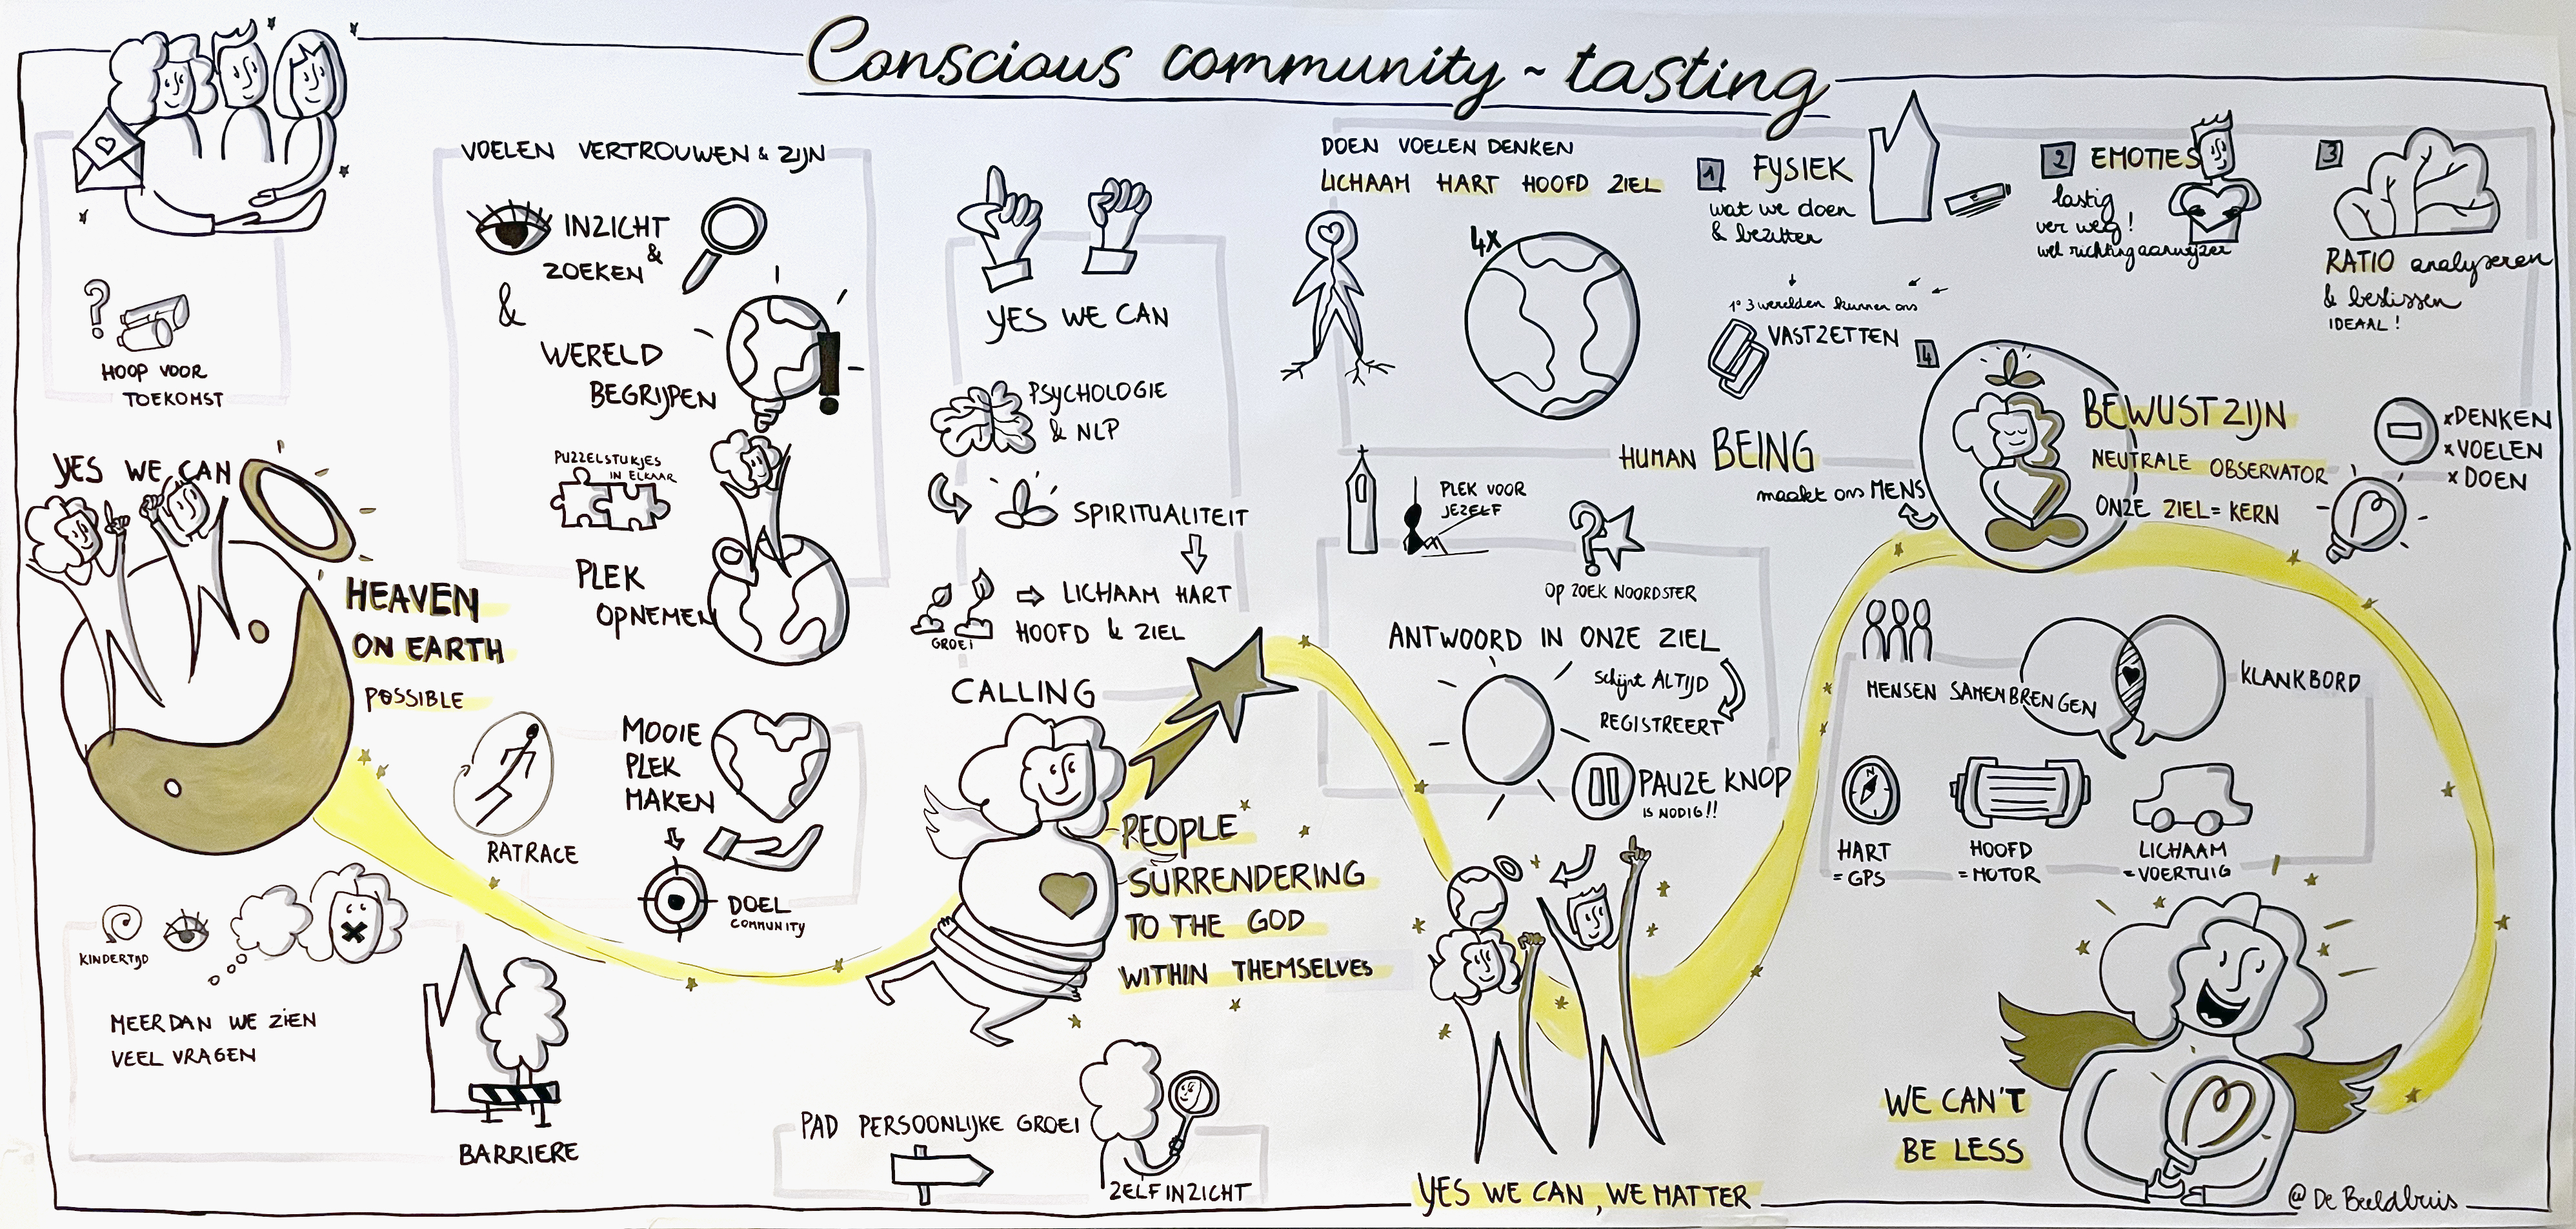 Conscious community ~ tasting
HOOP VOOR
TOEKOMST
YES WE CAN
HEAVEN
ON EARTH
POSSIBLE
KINDERTIJD
MEER DAN WE ZIEN
VEEL VRAGEN
BARRIERE
VOELEN VERTROUWEN & ZIJN
INZICHT
&
ZOEKEN
&
WERELD
BEGRIJPEN
PUZZELSTUKJES
IN ELKAAR
PLEK
OPNEMEN
RATRACE
MOOIE
PLEK
MAKEN
DOEL
COMMUNITY
YES WE CAN
PSYCHOLOGIE
& NLP
SPIRITUALITEIT
GROEI
LICHAAM HART
HOOFD & ZIEL
CALLING
PEOPLE
SURRENDERING
TO THE GOD
WITHIN THEMSELVES
PAD PERSOONLIJKE GROEI
ZELFINZICHT
DOEN VOELEN DENKEN
LICHAAM HART HOOFD ZIEL
4x
1 FYSIEK
wat we doen
& bezitten
2 EMOTIES
lastig
ver weg!
wel richtingaanwijzer
3
RATIO analyseren
& beslissen
IDEAAL!
1e 3 werelden kunnen ons
VASTZETTEN
4
HUMAN BEING
maakt ons MENS
BEWUSTZIJN
NEUTRALE OBSERVATOR
ONZE ZIEL = KERN
x DENKEN
x VOELEN
x DOEN
PLEK VOOR
JEZELF
?
OP ZOEK NOORDSTER
ANTWOORD IN ONZE ZIEL
schijnt ALTIJD
REGISTREERT
PAUZE KNOP
IS NODIG!!
YES WE CAN, WE MATTER
MENSEN SAMENBRENGEN
KLANKBORD
N
HART
= GPS
HOOFD
= MOTOR
LICHAAM
= VOERTUIG
WE CAN'T
BE LESS
@ De Beeldbuis